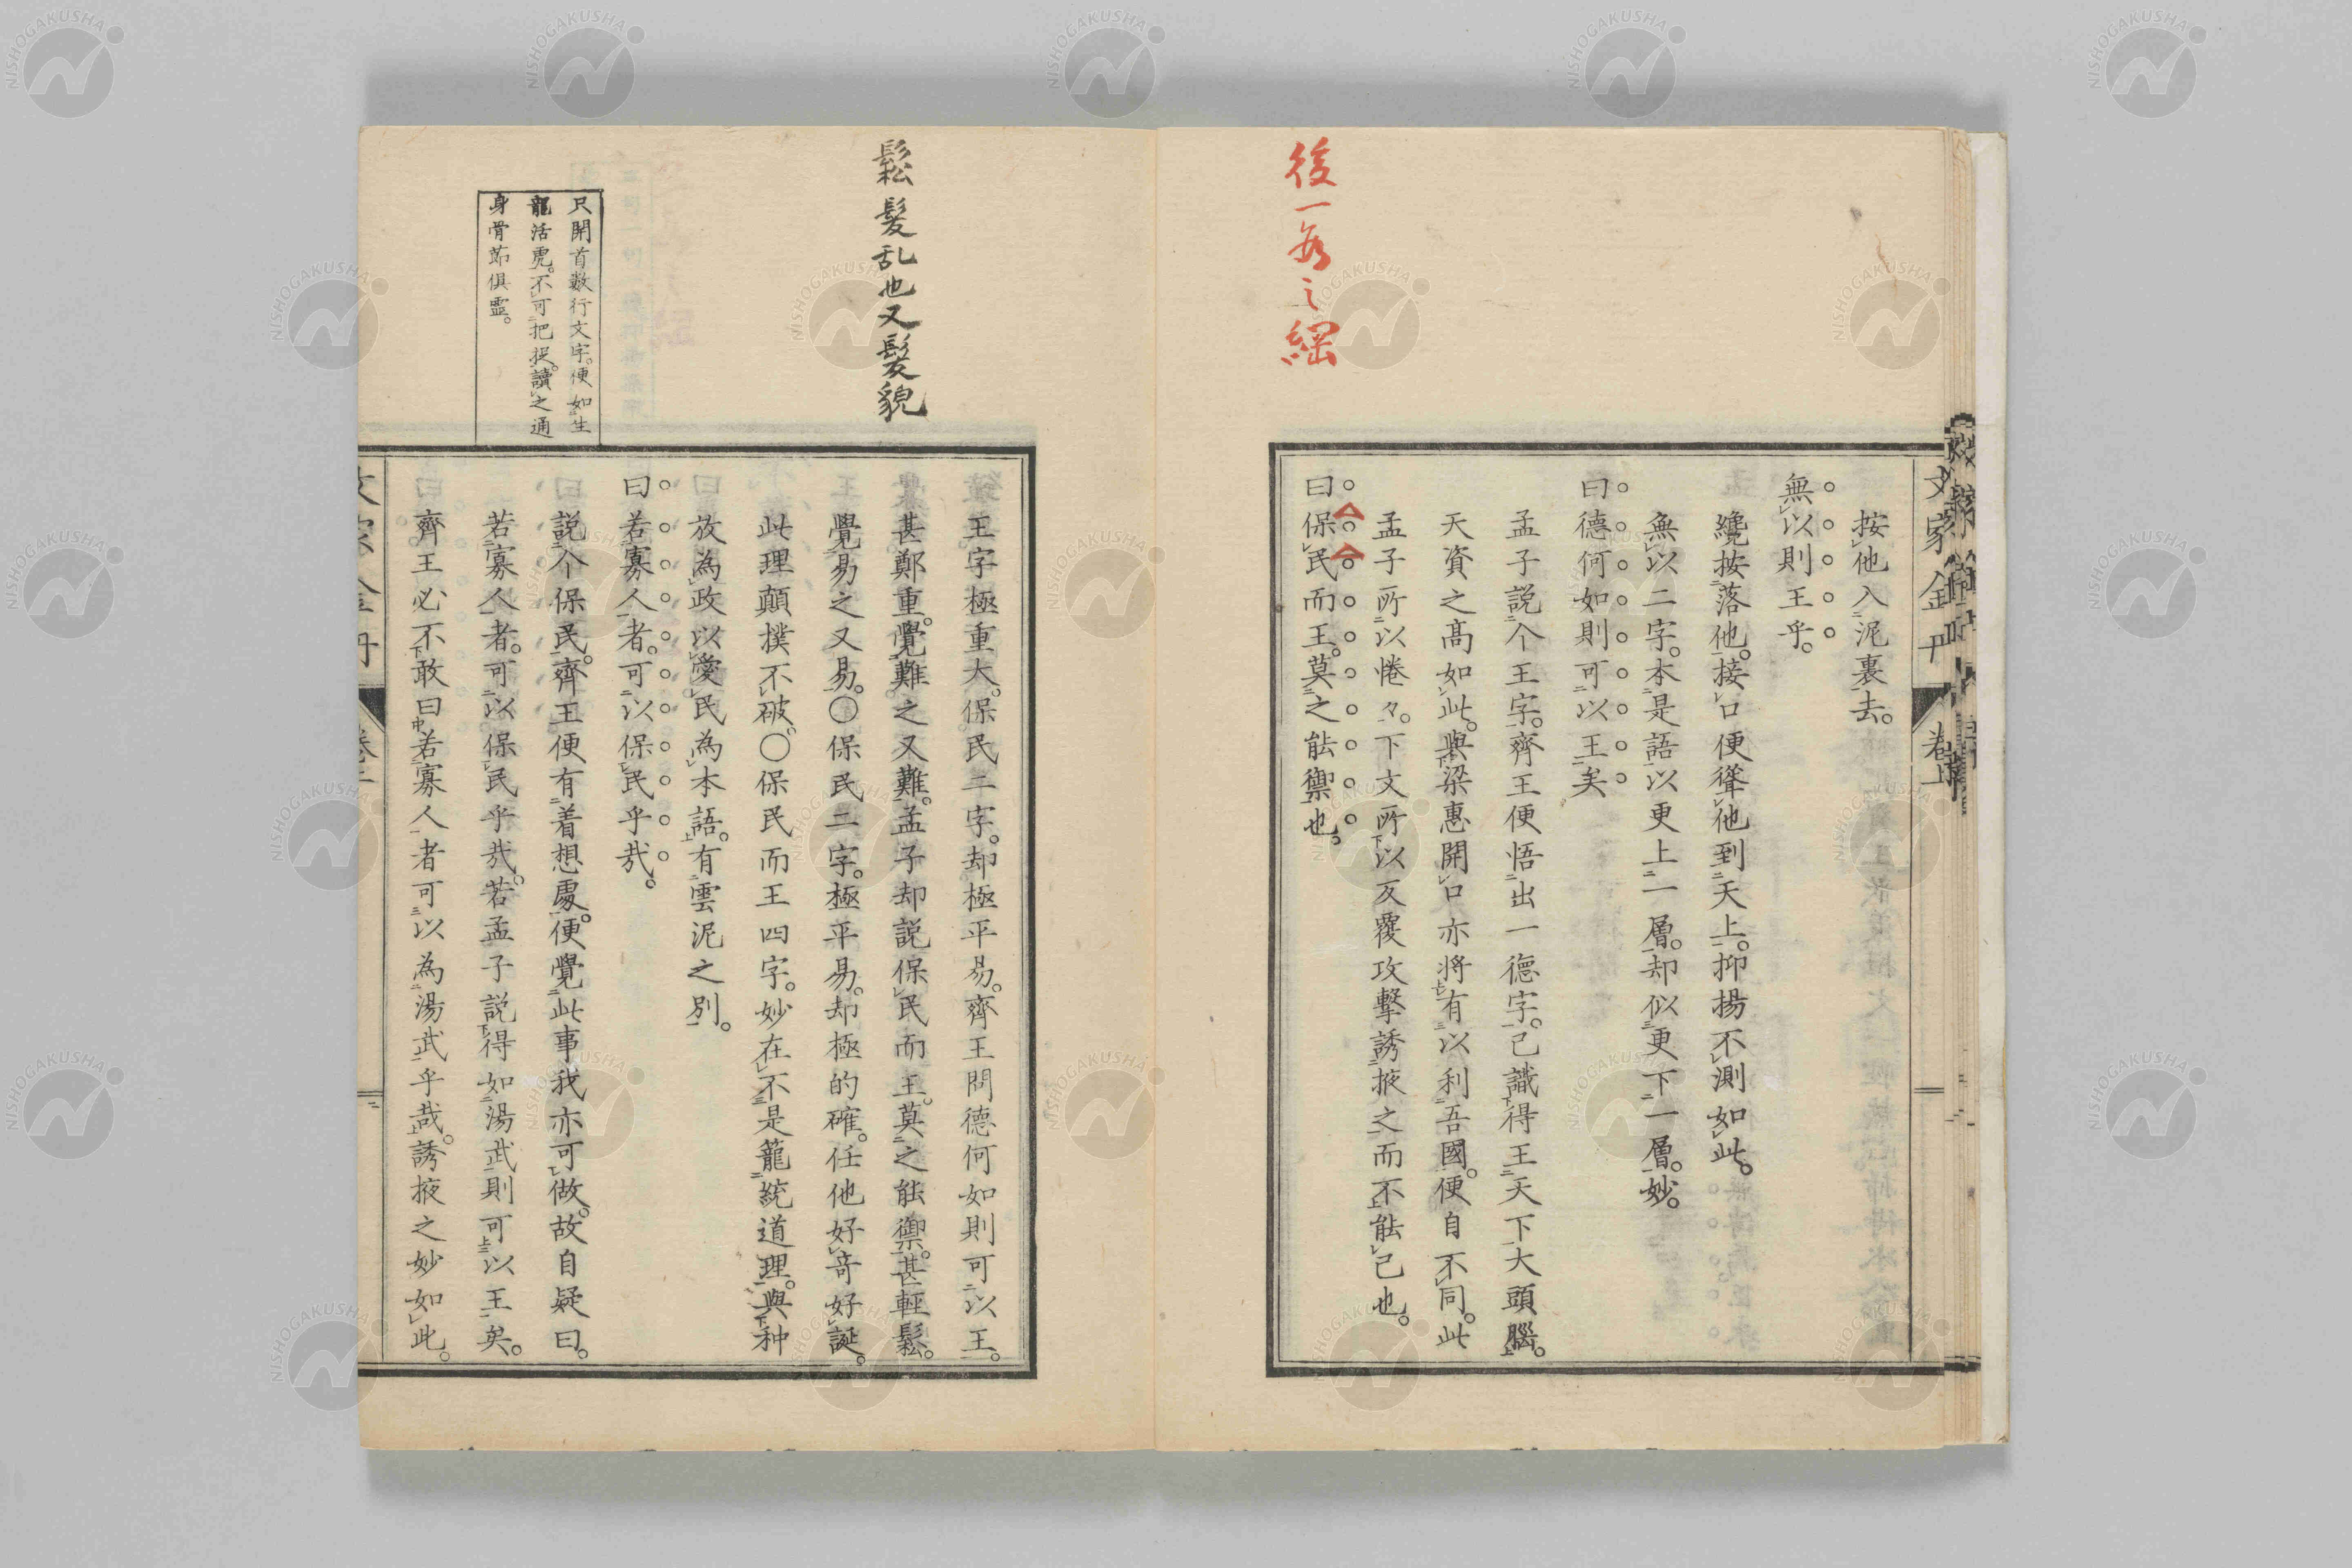 後一段之綱
文家金丹
卷上
按他入泥裏去。
無以則王乎。
纔按落他。接口便聳他到天上。抑揚不測如此。
無以二字。本是語以更上一層。却似更下一層。妙。
曰德何如則可以王矣
孟子説个王字。齊王便悟出一德字。已識得王天下大頭腦。
天資之髙如此。與梁惠開口亦將有以利吾國。便自不同。此
孟子所以惓々。下文所以反覆攻擊誘掖之而不能已也。
曰保民而王。莫之能禦也。
鬆髮乱也又髮貌
王字極重大。保民二字。却極平易。齊王問德何如則可以王。
甚鄭重。覺難之又難。孟子却説保民而王。莫之能禦。甚輕鬆。
覺易之又易。〇保民二字。極平易。却極的確。任他好竒好誕。
此理顛撲不破。〇保民而王四字。妙在不是籠統道理。與种
放為政以愛民為本語。有雲泥之別。
曰若寡人者。可以保民乎哉。
説个保民。齊王便有着想處。便覺此事我亦可做。故自疑曰。
若寡人者。可以保民乎哉。若孟子説得如湯武則可以王矣。
齊王必不敢曰若寡人者可以為湯武乎哉。誘掖之妙如此。
尺開首數行文字。便如生
龍活虎。不可把捉。讀之通
身骨節俱靈。